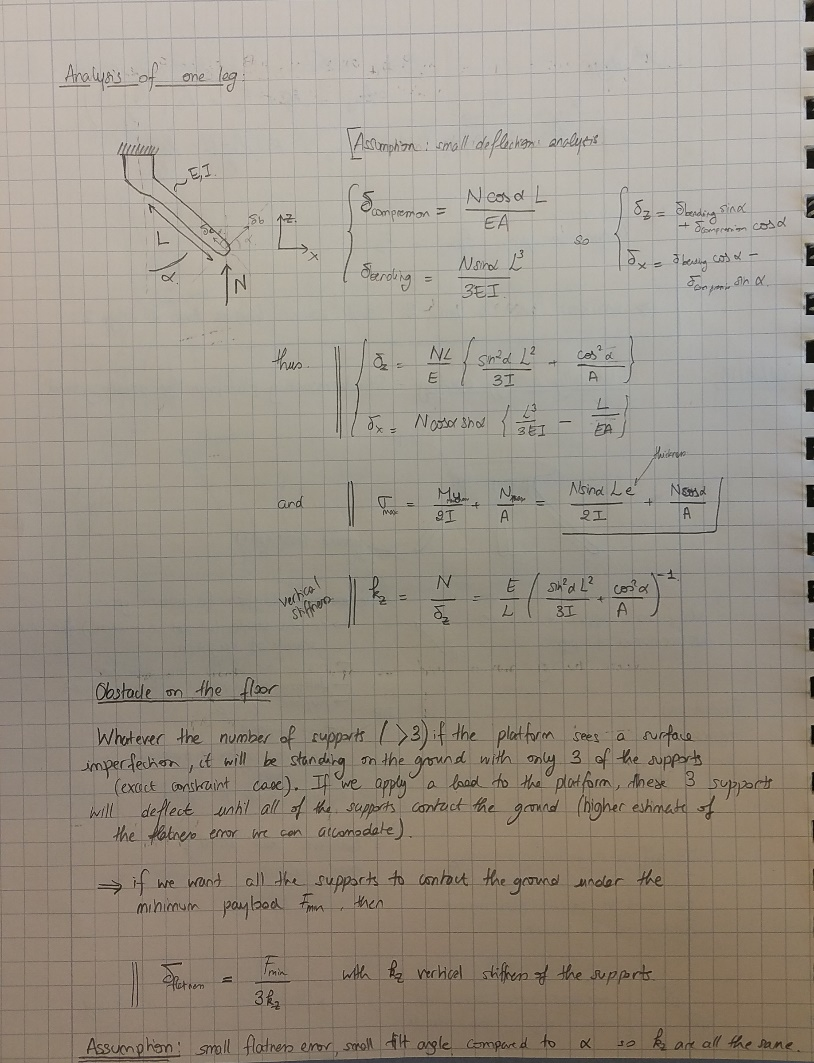 Analysis of one leg:
[Assumption: small deflection analysis
E, I
δb
δc
L
α
z
x
N
δcompression = N cosα L / EA
δbending = N sinα L³ / 3EI
so
δz = δbending sinα + δcompression cosα
δx = δbending cosα - δcompression sinα
thus
δz = NL/E { sin²α L²/3I + cos²α/A }
δx = N cosα sinα { L³/3EI - L/EA }
thickness
and σmax = M /2I + Nmax/A = N sinα L e/2I + N cosα/A
vertical stiffness kz = N/δz = E/L ( sin²α L²/3I + cos²α/A )⁻¹
Obstacle on the floor
Whatever the number of supports (>3) if the platform sees a surface
imperfection, it will be standing on the ground with only 3 of the supports
(exact constraint case). If we apply a load to the platform, these 3 supports
will deflect until all of the supports contact the ground (higher estimate of
the flatness error we can accomodate).
⇒ if we want all the supports to contact the ground under the
minimum payload Fmin, then
δflatness = Fmin / 3kz with kz vertical stiffness of the supports.
Assumption: small flatness error, small tilt angle compared to α so kz are all the same.